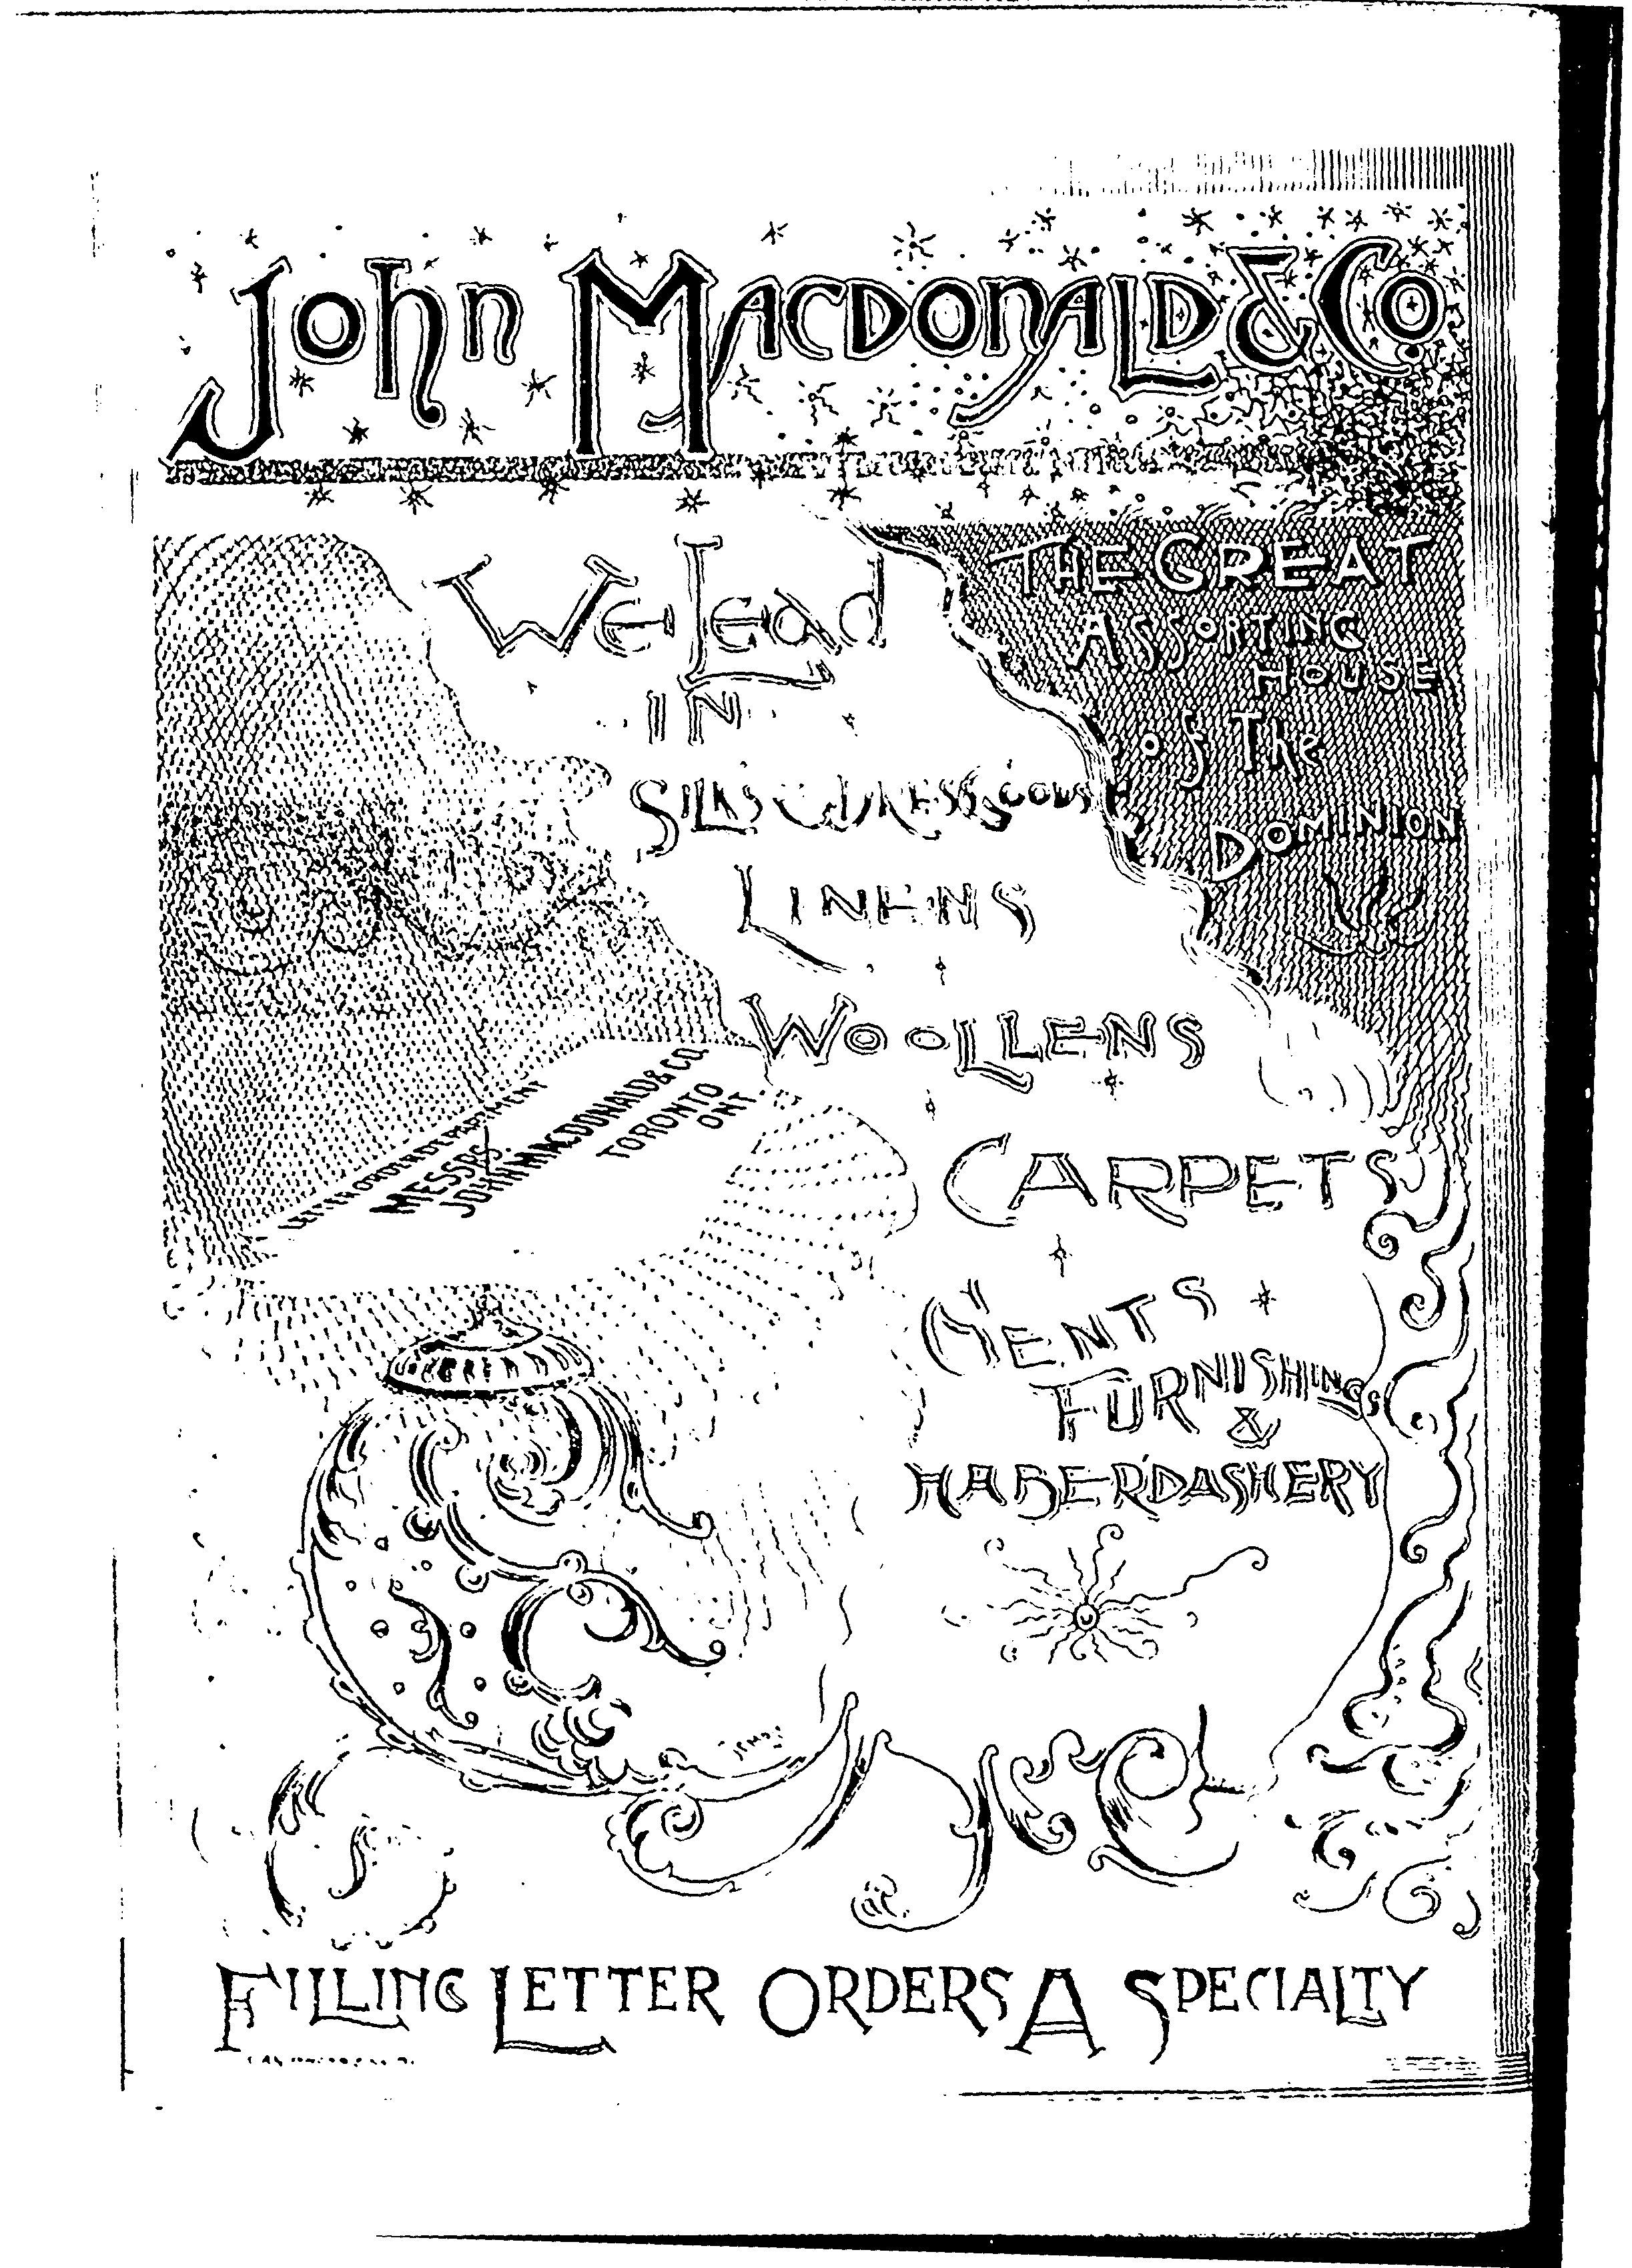 John Macdonald & Co
We Lead
IN
SILKS & DRESS GOODS
LINENS
WOOLLENS
CARPETS
MENTS
FURNISHINGS
&
HABERDASHERY
THE GREAT
ASSORTING
HOUSE
of The
DOMINION
LETTER ORDER DEPARTMENT
MESSRS
JOHN MACDONALD & CO.
TORONTO
ONT.
FILLING LETTER ORDERS A SPECIALTY